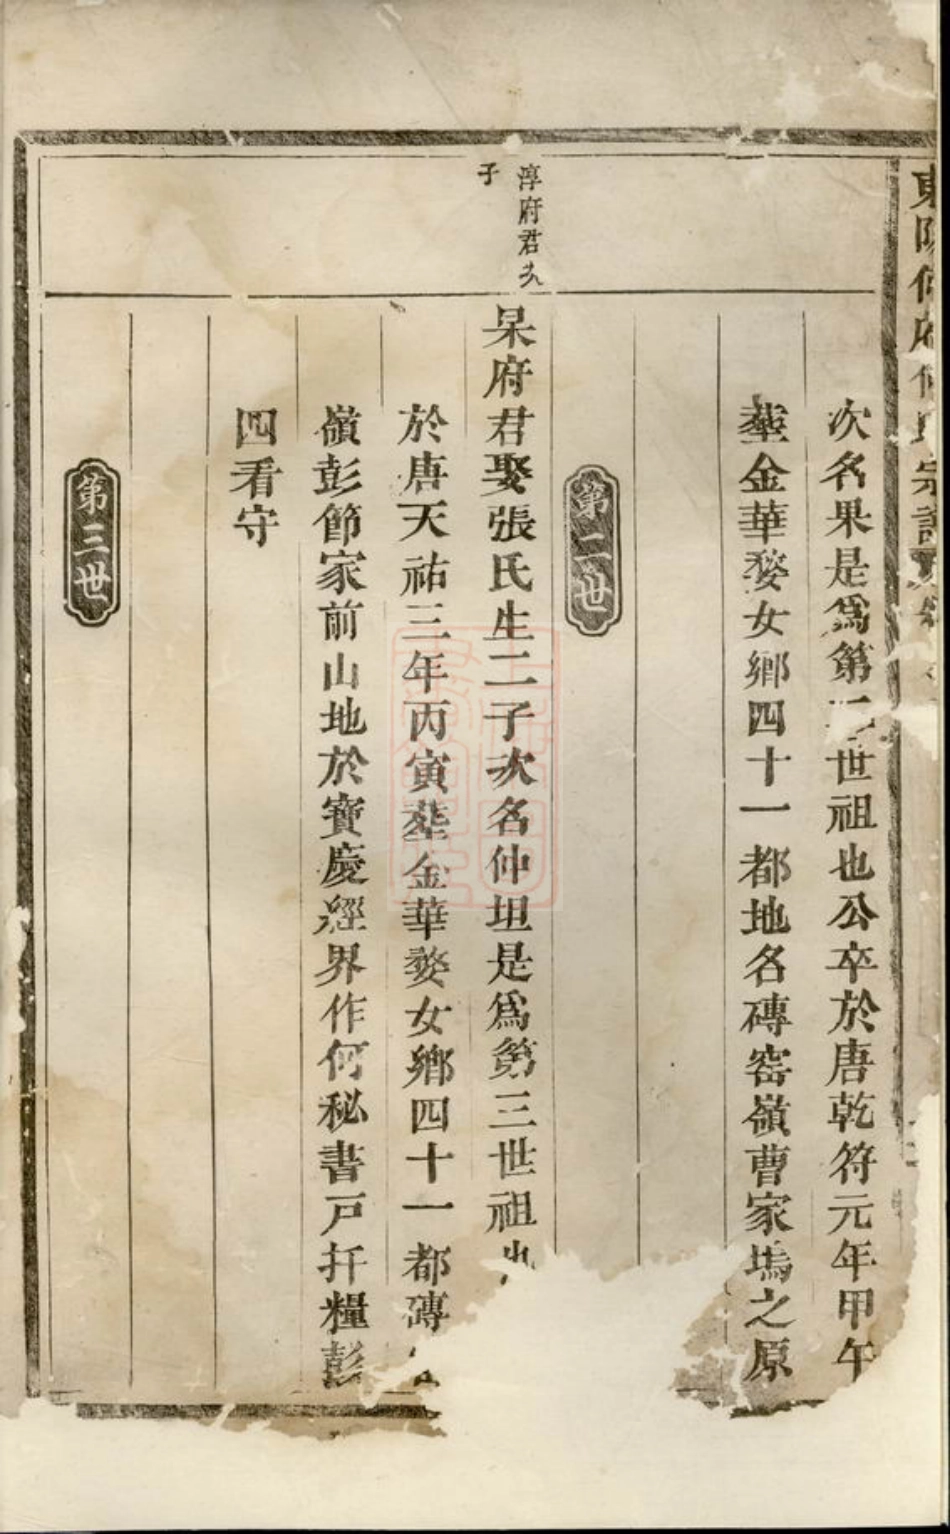 東陽何府何氏宗譜
次名果是爲第二世祖也公卒於唐乾符元年甲午
塟金華婺女鄉四十一都地名磚窑嶺曹家塢之原
第二世
淳府君次
子
杲府君娶張氏生二子次名仲坦是爲第三世祖也
於唐天祐三年丙寅塟金華婺女鄉四十一都磚
嶺彭節家前山地於寶慶經界作何秘書戸扞糧彭
四看守
第三世